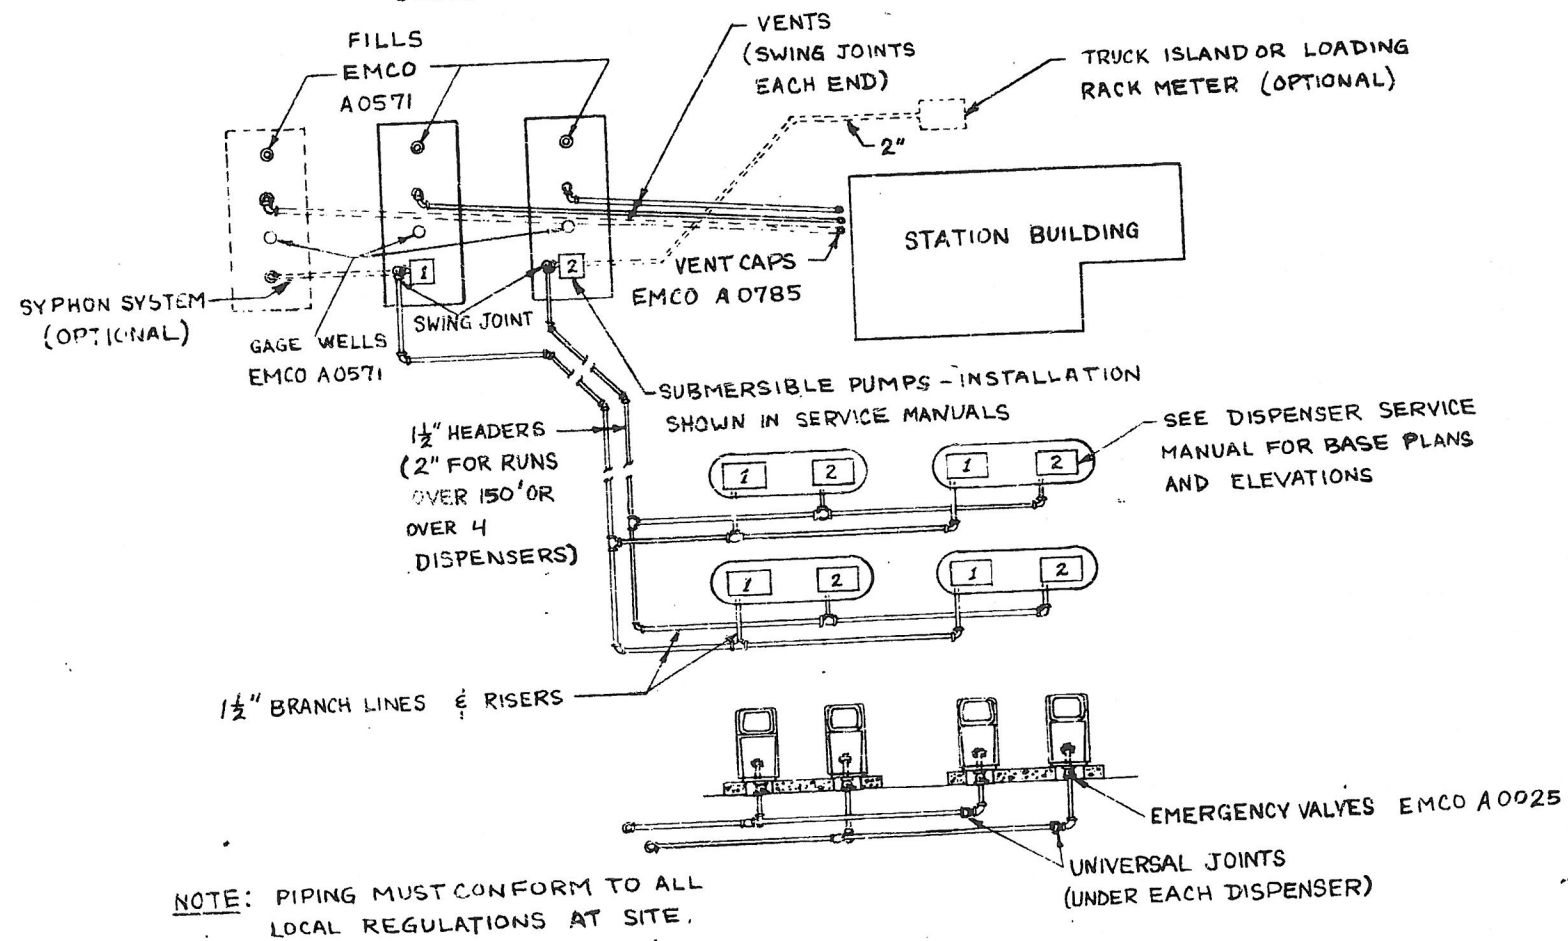 FILLS
EMCO
A0571
VENTS
(SWING JOINTS
EACH END)
TRUCK ISLAND OR LOADING
RACK METER (OPTIONAL)
2"
STATION BUILDING
VENT CAPS
EMCO A0785
1
2
SYPHON SYSTEM
(OPTIONAL)
GAGE WELLS
EMCO A0571
SWING JOINT
SUBMERSIBLE PUMPS - INSTALLATION
SHOWN IN SERVICE MANUALS
1½" HEADERS
(2" FOR RUNS
OVER 150' OR
OVER 4
DISPENSERS)
SEE DISPENSER SERVICE
MANUAL FOR BASE PLANS
AND ELEVATIONS
1 2 1 2
1 2 1 2
1½" BRANCH LINES & RISERS
EMERGENCY VALVES EMCO A0025
UNIVERSAL JOINTS
(UNDER EACH DISPENSER)
NOTE: PIPING MUST CONFORM TO ALL
LOCAL REGULATIONS AT SITE.